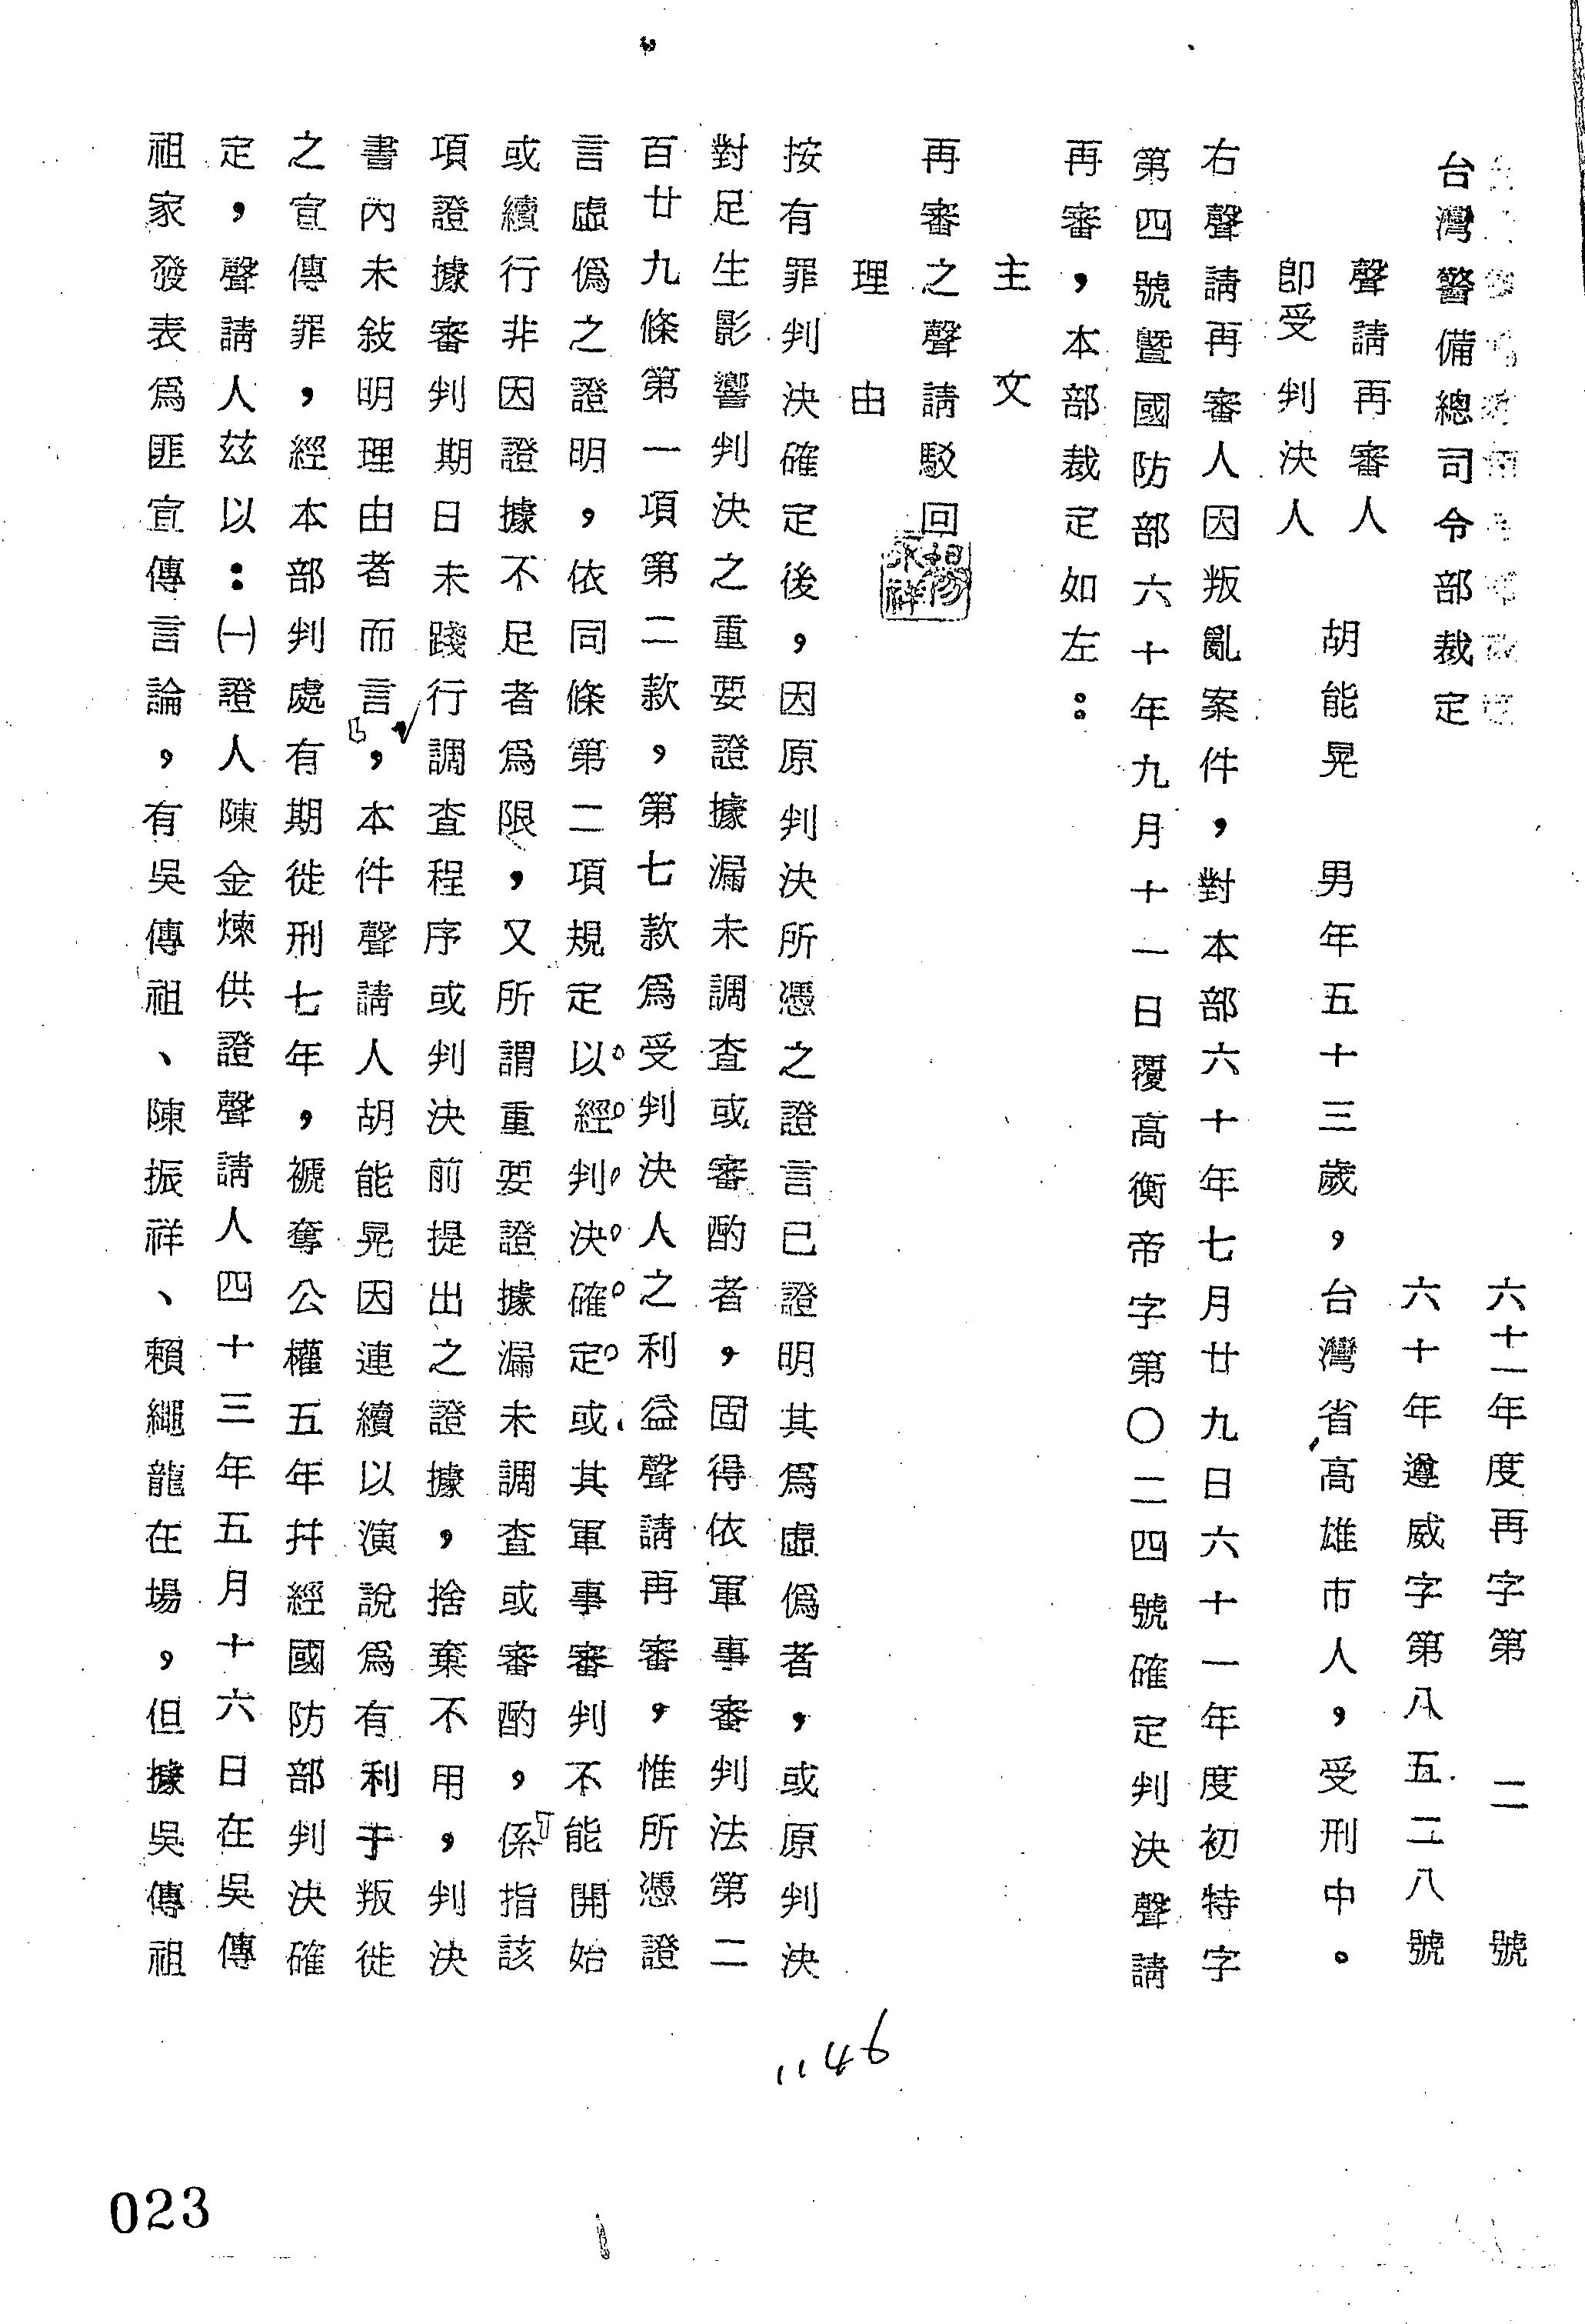 台灣警備總司令部裁定
六十一年度再字第二號
六十年遵威字第八五二八號
聲請再審人
即受判決人
胡能晃　男年五十三歲，台灣省高雄市人，受刑中。
右聲請再審人因叛亂案件，對本部六十年七月廿九日六十一年度初特字
第四號暨國防部六十年九月十一日覆高衡帝字第〇二四號確定判決聲請
再審，本部裁定如左：
主文
再審之聲請駁回
理由
按有罪判決確定後，因原判決所憑之證言已證明其為虛偽者，或原判決
對足生影響判決之重要證據漏未調查或審酌者，固得依軍事審判法第二
百廿九條第一項第二款，第七款為受判決人之利益聲請再審，惟所憑證
言虛偽之證明，依同條第二項規定以經判決確定或其軍事審判不能開始
或續行非因證據不足者為限，又所謂重要證據漏未調查或審酌，係指該
項證據審判期日未踐行調查程序或判決前提出之證據，捨棄不用，判決
書內未敍明理由者而言，本件聲請人胡能晃因連續以演說為有利于叛徒
之宣傳罪，經本部判處有期徒刑七年，褫奪公權五年幷經國防部判決確
定，聲請人茲以：㈠證人陳金煉供證聲請人四十三年五月十六日在吳傳
祖家發表為匪宣傳言論，有吳傳祖、陳振祥、賴繩龍在場，但據吳傳祖
1146
023